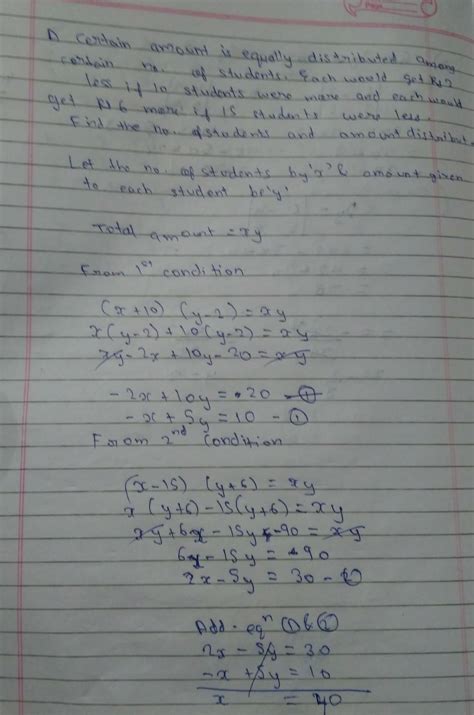 A certain amount is equally distributed among
certain no. of students. Each would get Rs 2
less if 10 students were more and each would
get Rs 6 more if 15 students were less.
Find the no. of students and amount distribut.
Let the no. of students by 'x' & amount given
to each student be 'y'
Total amount = xy
From 1st condition
(x+10) (y-2) = xy
x(y-2)+10(y-2) = xy
xy-2x+10y-20 = xy
-2x+10y = 20
-x+5y = 10 - ①
From 2nd condition
(x-15) (y+6) = xy
x (y+6) -15(y+6) = xy
xy+6x-15y-90 = xy
6x-15y = 90
2x-5y = 30 - ②
Add. eqn ① & ②
2x - 5y = 30
-x + 5y = 10
x = 40